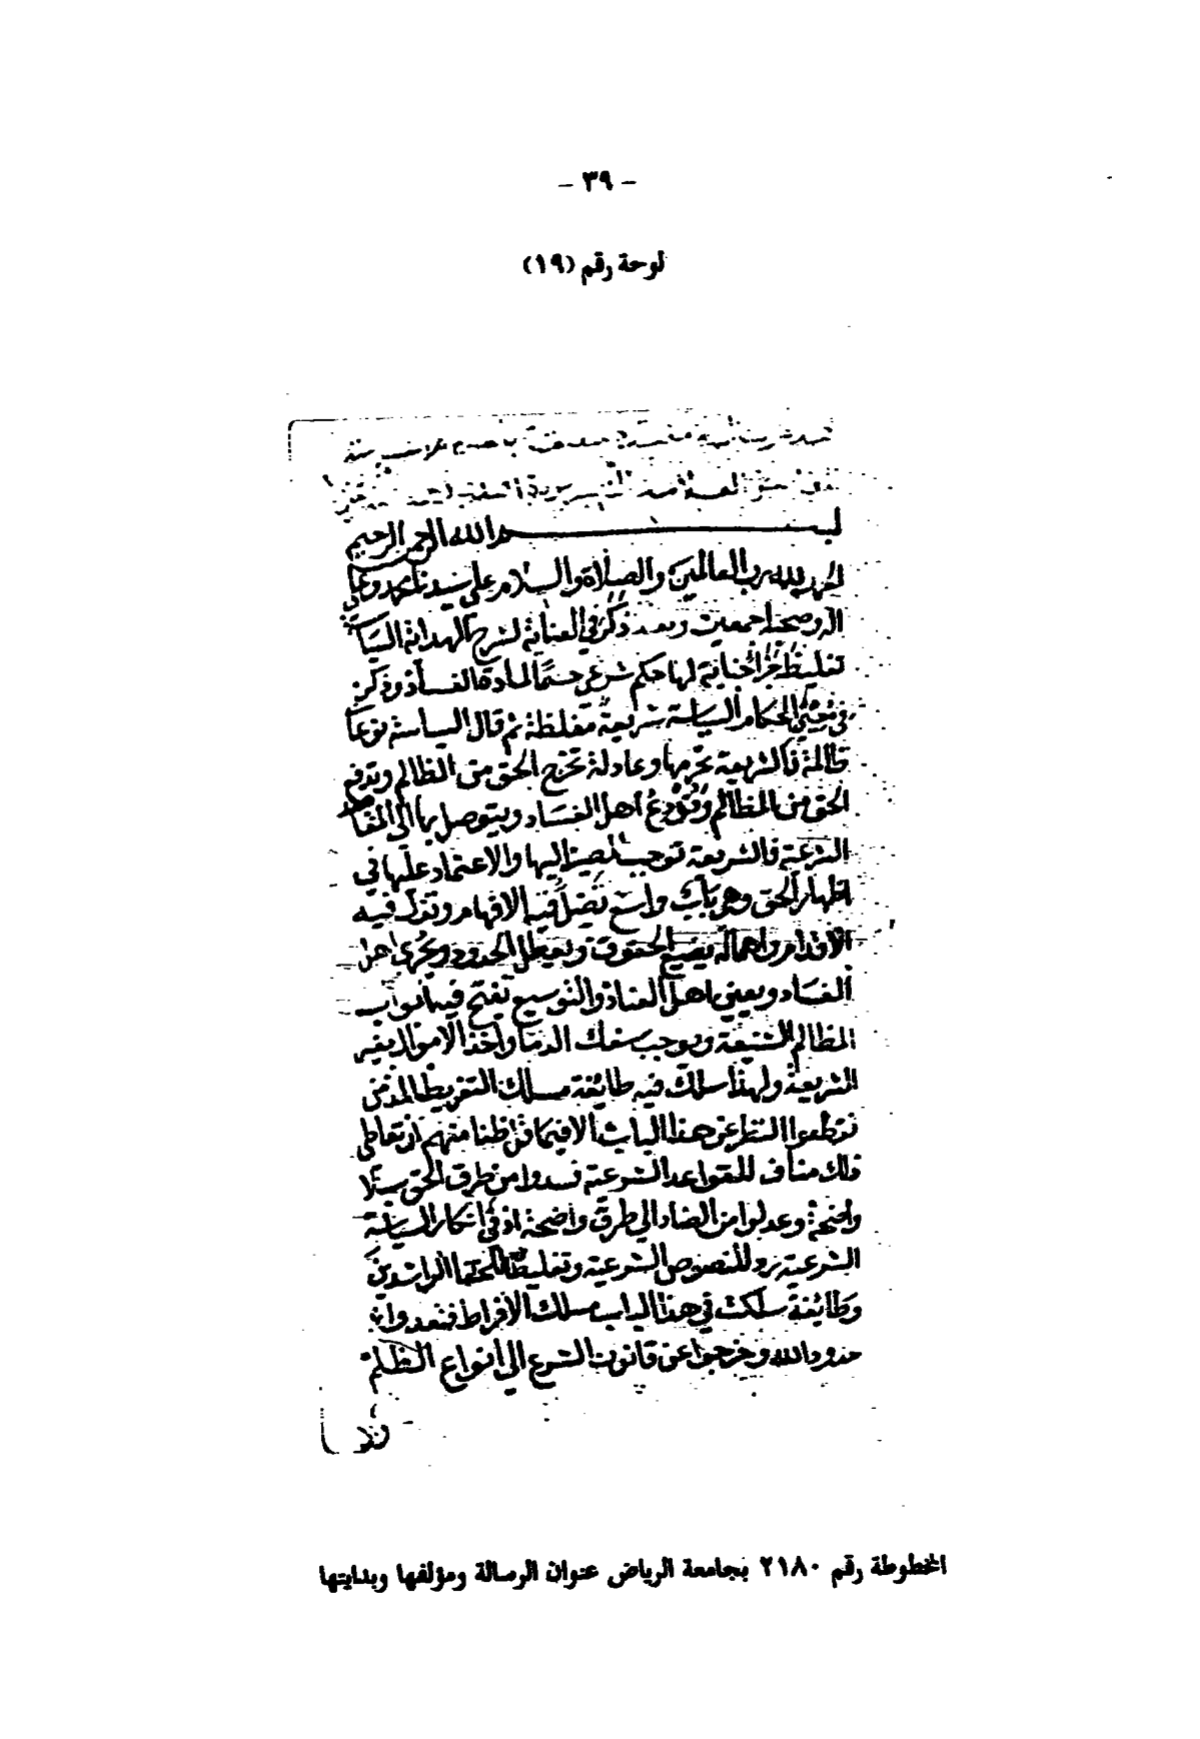 - ٣٩ -
لوحة رقم (١٩)
بسم الله الرحمن الرحيم
الحمد لله رب العالمين والصلاة والسلام على سيدنا محمد وعلى
اله وصحبه اجمعين وبعد ذكر في العناية لشرح الهداية السياسة
تغليظ جزا جناية لها حكم شرعي حسمًا لمادة الفساد وذكر
في معين الحكام السياسة شريعة مغلظة ثم قال السياسة نوعا
ظالمة فالشريعة تحرمها وعادلة تخرج الحق من الظالم وتدفع
الحق من المظالم وتردع اهل الفساد ويتوصل بها الى المقاصد
الشرعية فالشريعة توجب المصير اليها والاعتماد عليها في
اظهار الحق وهو باب واسع تضل فيه الافهام وتزل فيه
الاقدام واهماله يضيع الحقوق ويعطل الحدود ويجري اهل
الفساد ويعين اهل العناد والتوسيع تفتح فيه ابواب
المظالم الشنيعة ويوجب سفك الدما واخذ الاموال بغير
الشريعة ولهذا سلك فيه طائفة مسلك التفريط المذموم
فقطعوا النظر عن هذا الباب الا فيما قل ظنا منهم ان تعاطي
ذلك مناف للقواعد الشرعية فسدوا من طرق الحق سبلا
واضحة وعدلوا من العناد الى طرق واضحة اذ في انكار السياسة
الشرعية رد للنصوص الشرعية وتغليط للخلفا الراشدين
وطائفة سلكت في هذا الباب مسلك الافراط فتعدوا
حدود الله وخرجوا عن قانون الشرع الى انواع الظلم
المخطوطة رقم ٢١٨٠ بجامعة الرياض عنوان الرسالة ومؤلفها وبدايتها